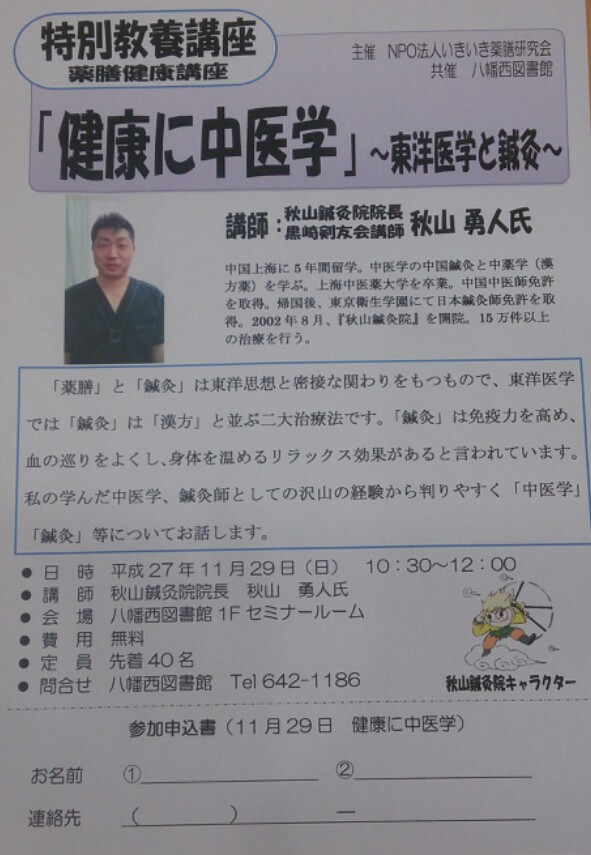 特別教養講座
薬膳健康講座
主催 NPO法人いきいき薬膳研究会
共催 八幡西図書館
「健康に中医学」～東洋医学と鍼灸～
講師：秋山鍼灸院院長
黒崎剣友会講師 秋山 勇人氏
中国上海に5年間留学。中医学の中国鍼灸と中薬学（漢
方薬）を学ぶ。上海中医薬大学を卒業。中国中医師免許
を取得。帰国後、東京衛生学園にて日本鍼灸師免許を取
得。2002年8月、『秋山鍼灸院』を開院。15万件以上
の治療を行う。
「薬膳」と「鍼灸」は東洋思想と密接な関わりをもつもので、東洋医学
では「鍼灸」は「漢方」と並ぶ二大治療法です。「鍼灸」は免疫力を高め、
血の巡りをよくし、身体を温めるリラックス効果があると言われています。
私の学んだ中医学、鍼灸師としての沢山の経験から判りやすく「中医学」
「鍼灸」等についてお話します。
● 日 時 平成27年11月29日（日） 10：30～12：00
● 講 師 秋山鍼灸院院長 秋山 勇人氏
● 会 場 八幡西図書館1Fセミナールーム
● 費 用 無料
● 定 員 先着40名
● 問合せ 八幡西図書館 Tel 642-1186
秋山鍼灸院キャラクター
参加申込書（11月29日 健康に中医学）
お名前 ①＿＿＿＿ ②＿＿＿＿
連絡先 （ ） ―